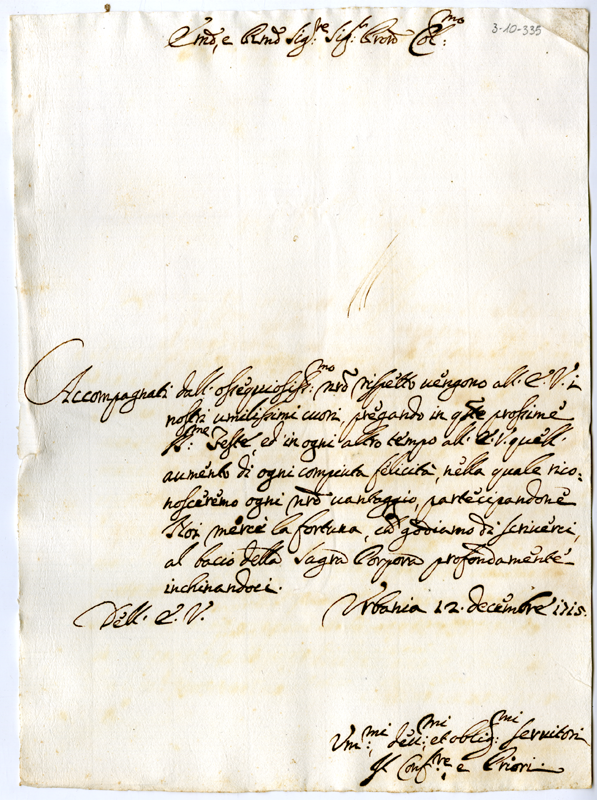 3-10-335
Emo, e Rmo Sig:re Sig:r Prone Col:mo
Accompagnati dall' ossequiosiss:mo nrõ rispetto uengono all' E. V. i
nostri umilissimi cuori, pregando in q̃ste prossime
SS:me Feste, ed in ogni altro tempo all' E. V. quell'
aumento di ogni compiuta felicità, nella quale rico:
nosceremo ogni nrõ uantaggio, partecipandone
Noi mercè la fortuna, che godiamo di scriuerci,
al bacio della Sagra Porpora profondamente
inchinandoci.
Dell' E. V. Urbania 12. decembre 1715.
Um:mi, deu:mi et oblig:mi seruitori
Il Conf:re e Priori